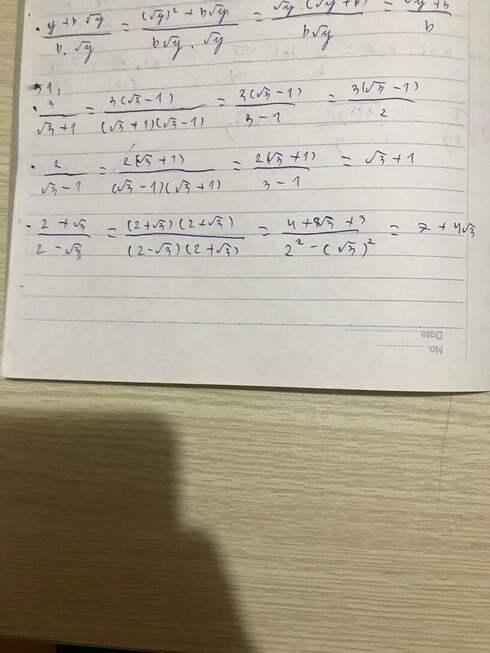 . (y + b.√y)/(b.√y) = ((√y)² + b√y)/(b√y . √y) = (√y . (√y + b))/(b√y) = (√y + b)/b
51,
. 3/(√3 + 1) = 3(√3 - 1)/((√3 + 1)(√3 - 1)) = 3(√3 - 1)/(3 - 1) = 3(√3 - 1)/2
. 2/(√3 - 1) = 2(√3 + 1)/((√3 - 1)(√3 + 1)) = 2(√3 + 1)/(3 - 1) = √3 + 1
. (2 + √3)/(2 - √3) = (2 + √3)(2 + √3)/((2 - √3)(2 + √3)) = (4 + 4√3 + 3)/(2² - (√3)²) = 7 + 4√3
Date
No.